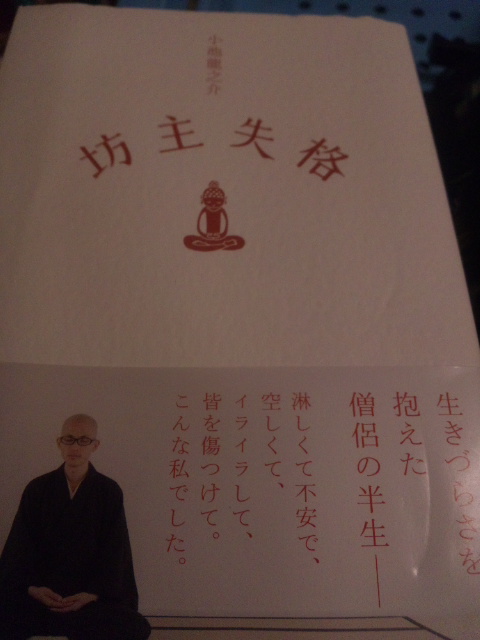 小池龍之介
坊主失格
生きづらさを
抱えた
僧侶の半生――
淋しくて不安で、
空しくて、
イライラして、
皆を傷つけて。
こんな私でした。